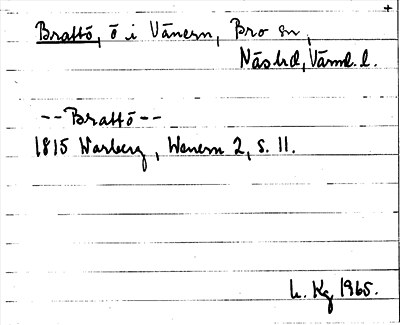 +
Brattö, ö i Vänern, Bro sn,
Näs hd, Värml. l.
--Brattö--
1815 Warberg, Wenern 2, s. 11.
L. Kg 1965.